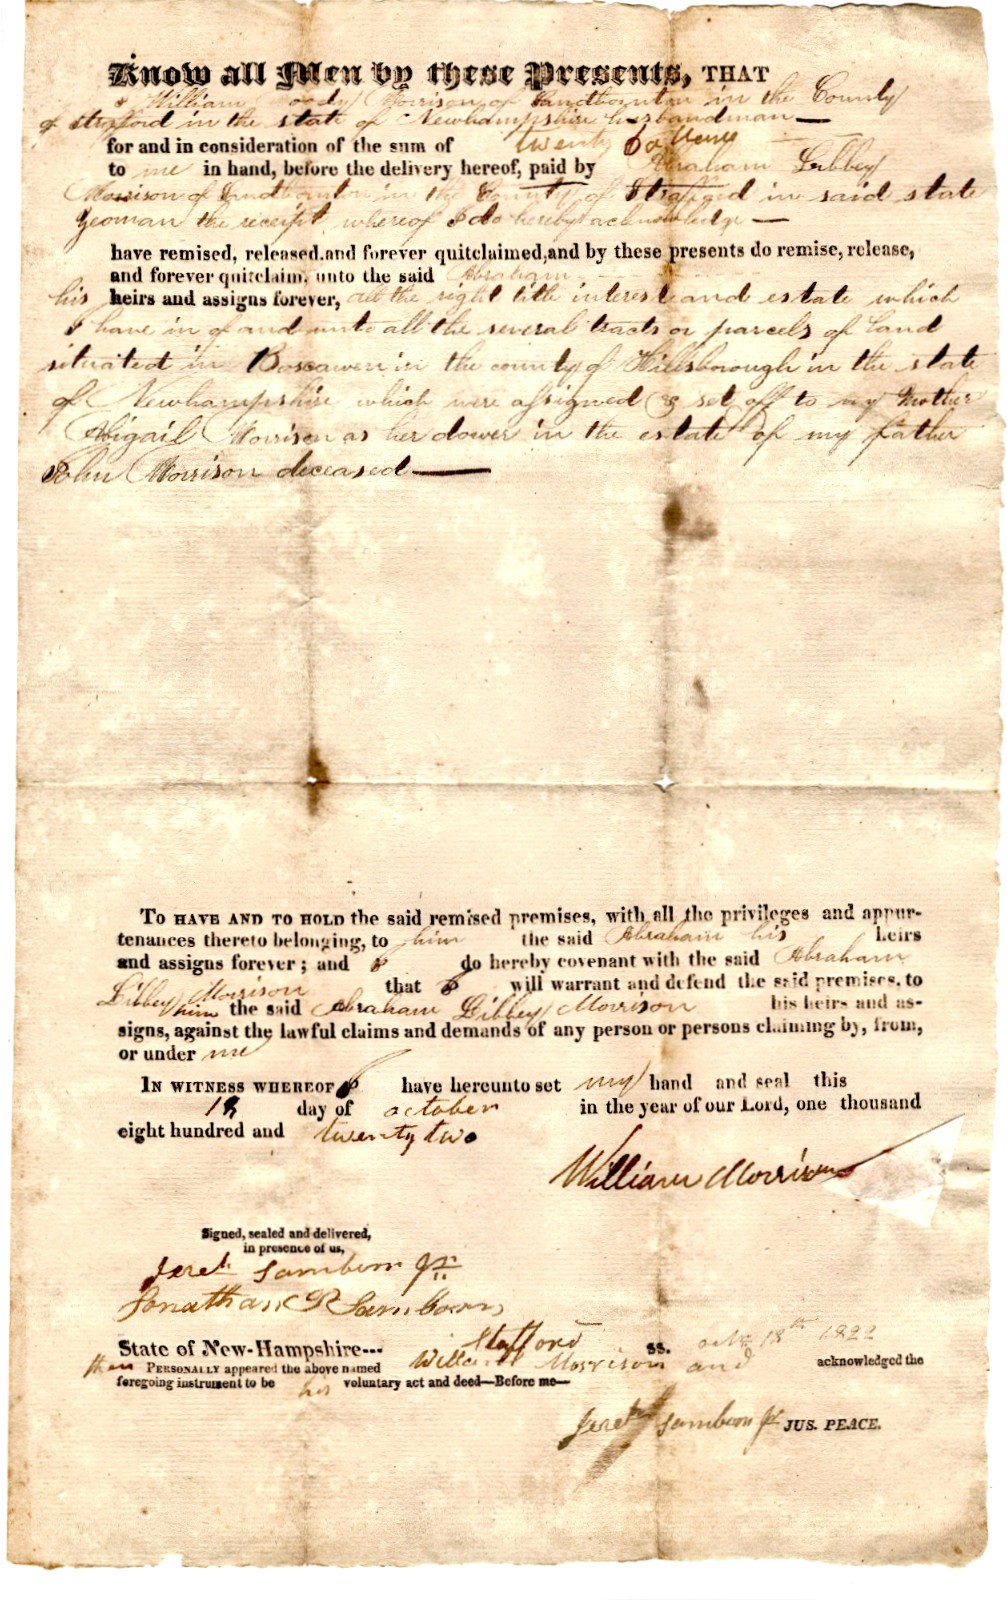 Know all Men by these Presents, THAT
I William Morrison of Sandbornton in the County
of strafford in the state of Newhampshire husbandman
for and in consideration of the sum of twenty dollars
to me in hand, before the delivery hereof, paid by Abraham Libbey
Morrison of Sandbornton in the County of Strafford in said state
yeoman the receipt whereof I do hereby acknowledge
have remised, released, and forever quitclaimed, and by these presents do remise, release,
and forever quitclaim, unto the said Abraham
his heirs and assigns forever, all the right title interest and estate which
I have in of and unto all the several tracts or parcels of land
situated in Boscawen in the county of Hillsborough in the state
of Newhampshire which were assigned & set off to my Mother
Abigail Morrison as her dower in the estate of my father
John Morrison deceased
To HAVE AND TO HOLD the said remised premises, with all the privileges and appur-
tenances thereto belonging, to him the said Abraham his heirs
and assigns forever; and I do hereby covenant with the said Abraham
Libbey Morrison that I will warrant and defend the said premises, to
him the said Abraham Libbey Morrison his heirs and as-
signs, against the lawful claims and demands of any person or persons claiming by, from,
or under me
IN WITNESS WHEREOF I have hereunto set my hand and seal this
18 day of october in the year of our Lord, one thousand
eight hundred and twenty two
William Morrison
Signed, sealed and delivered,
in presence of us,
Jereh Sanborn Jr
Jonathan R Sanborn
State of New-Hampshire--- Strafford ss. octr 18th 1822
then PERSONALLY appeared the above named William Morrison and acknowledged the
foregoing instrument to be his voluntary act and deed—Before me—
Jereh Sanborn Jr JUS. PEACE.